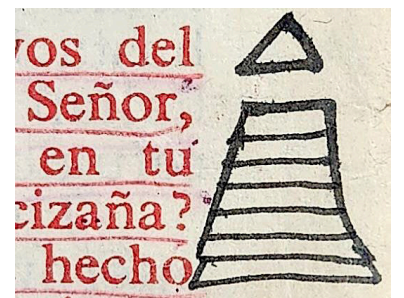 del
Señor,
en tu
cizaña?
hecho